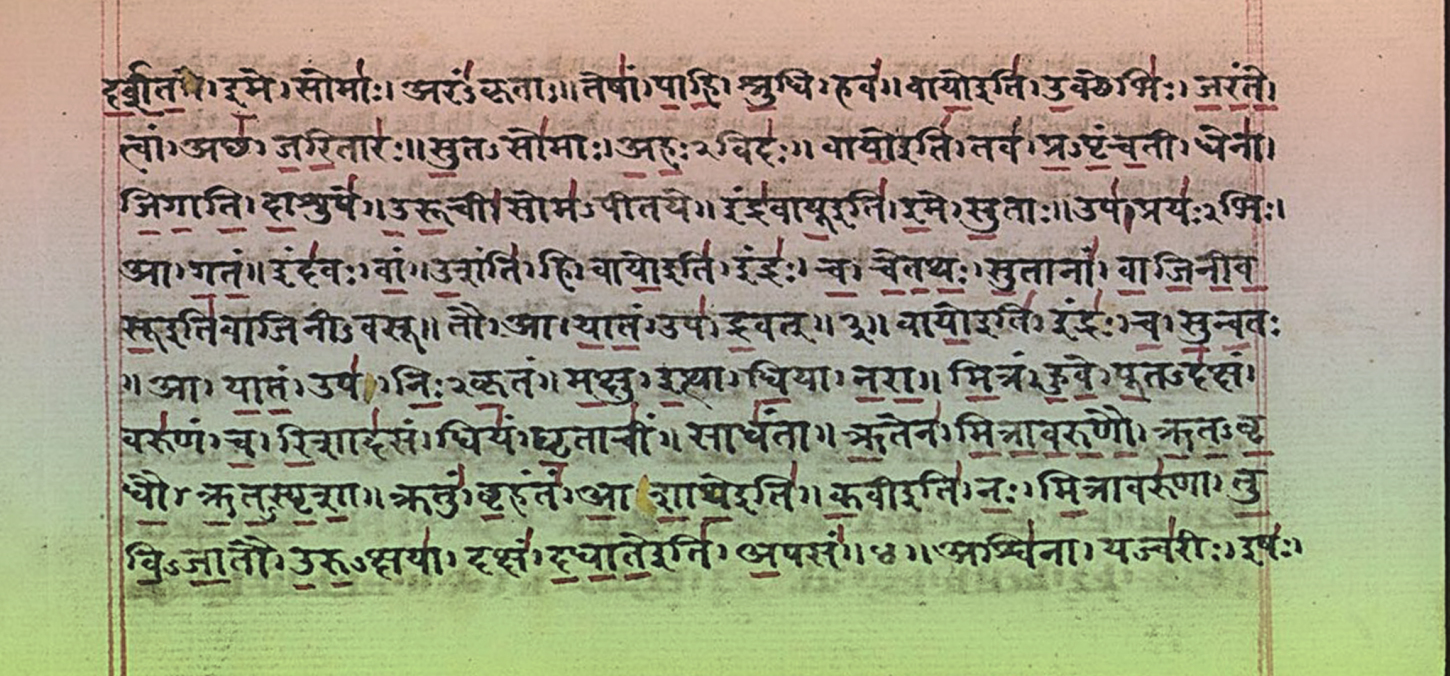 दर्शत। इमे। सोमाः। अरंऽकृताः॥ तेषां। पाहि। श्रुधि। हवं॥ वायोइति। उक्थेभिः। जरंते।
त्वां। अच्छ। जरितारः॥ सुतऽसोमाः। अहःऽविदः॥ वायोइति। तव। प्रऽपृंचती। धेना।
जिगाति। दाशुषे॥ उरूची। सोमऽपीतये॥ इंद्रवायूइति। इमे। सुताः॥ उप। प्रयःऽभिः।
आ। गतं॥ इंदवः। वां। उशंति। हि॥ वायोइति। इंद्रः। च। चेतथः। सुतानां। वाजिनीव
सूइतिवाजिनीऽवसू॥ तौ। आ। यातं। उप। द्रवत्॥ ३॥ वायोइति। इंद्रः। च। सुन्वतः
॥ आ। यातं। उप। निःऽकृतं॥ मक्षु। इत्था। धिया। नरा॥ मित्रं। हुवे। पूतऽदक्षं।
वरुणं। च। रिशादसं। धियं। घृताचीं। साधंता॥ ऋतेन। मित्रावरुणौ। ऋतऽवृ
धौ। ऋतऽस्पृशा॥ क्रतुं। बृहंतं। आशाथेइति॥ कवीइति। नः। मित्रावरुणा। तु
विऽजातौ। उरुऽक्षया। दक्षं। दधातेइति। अपसं॥ ४॥ अश्विना। यज्वरीः। इषः।